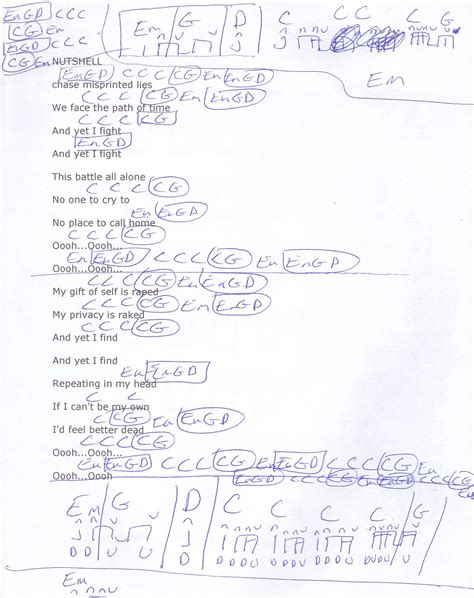 EmGD CCC
CG Em
EmGD CCC
CG Em
Em G D C C C G
Em
NUTSHELL
EmGD C C C CG Em EmGD
chase misprinted lies
C C C CG Em EmGD
We face the path of time
C C C CG
And yet I fight
EmGD
And yet I fight
This battle all alone
C C C CG
No one to cry to
Em EmGD
No place to call home
C C C CG
Oooh...Oooh...
Em EmGD C C C CG Em EmGD
Oooh...Oooh...
C C C CG Em EmGD
My gift of self is raped
C C C CG Em EmGD
My privacy is raked
C C C CG
And yet I find
And yet I find
Em EmGD
Repeating in my head
C C
If I can't be my own
C CG Em EmGD
I'd feel better dead
C C C CG
Oooh...Oooh...
Em EmGD C C C CG Em EmGD C C C CG Em
Oooh...Oooh
EmGD C C C CG Em EmGD C C C CG
Em G D C C C G
D D U U D D D D U D D D U
Em